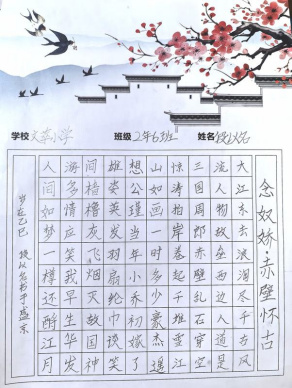 学校 文萃小学 班级 2年6班 姓名
念奴娇·赤壁怀古
大江东去浪淘尽千古风
流人物故垒西边人道是
三国周郎赤壁乱石穿空
惊涛拍岸卷起千堆雪江
山如画一时多少豪杰遥
想公瑾当年小乔初嫁了
雄姿英发羽扇纶巾谈笑
间樯橹灰飞烟灭故国神
游多情应笑我早生华发
人间如梦一樽还酹江月
岁在乙巳 书于盛京